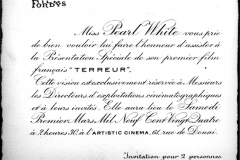 Miss Pearl White vous prie
de bien vouloir lui faire l'honneur d'assister à
la Présentation Spéciale de son premier film
français "TERREUR".
Cette vision est exclusivement réservée à Messieurs
les Directeurs d'exploitations cinématographiques
et à leurs invités. Elle aura lieu le Samedi
Premier Mars Mil Neuf Cent Vingt Quatre
à 2 heures 30, à l'ARTISTIC CINEMA, 61, rue de Douai.
Invitation pour 2 personnes